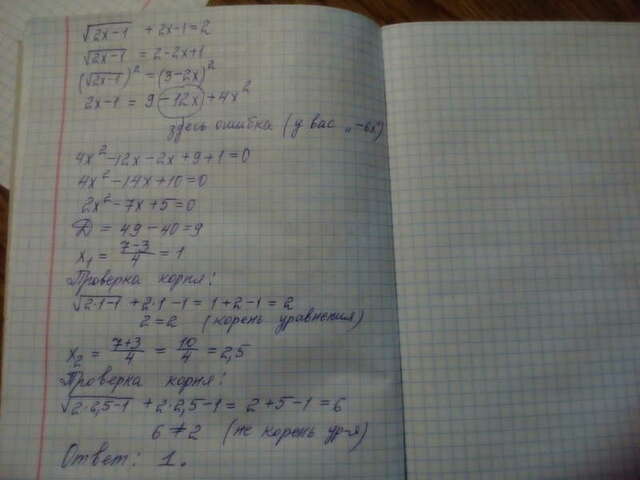 √2x-1 + 2x-1=2
√2x-1 = 2-2x+1
(√2x-1)² = (3-2x)²
2x-1 = 9-12x+4x²
здесь ошибка (у вас „-6x")
4x²-12x-2x+9+1=0
4x²-14x+10=0
2x²-7x+5=0
D = 49-40=9
x₁ = 7-3/4 = 1
Проверка корня:
√2·1-1 + 2·1-1 = 1+2-1=2
2=2 (корень уравнения)
x₂ = 7+3/4 = 10/4 = 2,5
Проверка корня:
√2·2,5-1 + 2·2,5-1 = 2+5-1=6
6≠2 (не корень ур-я)
Ответ: 1.